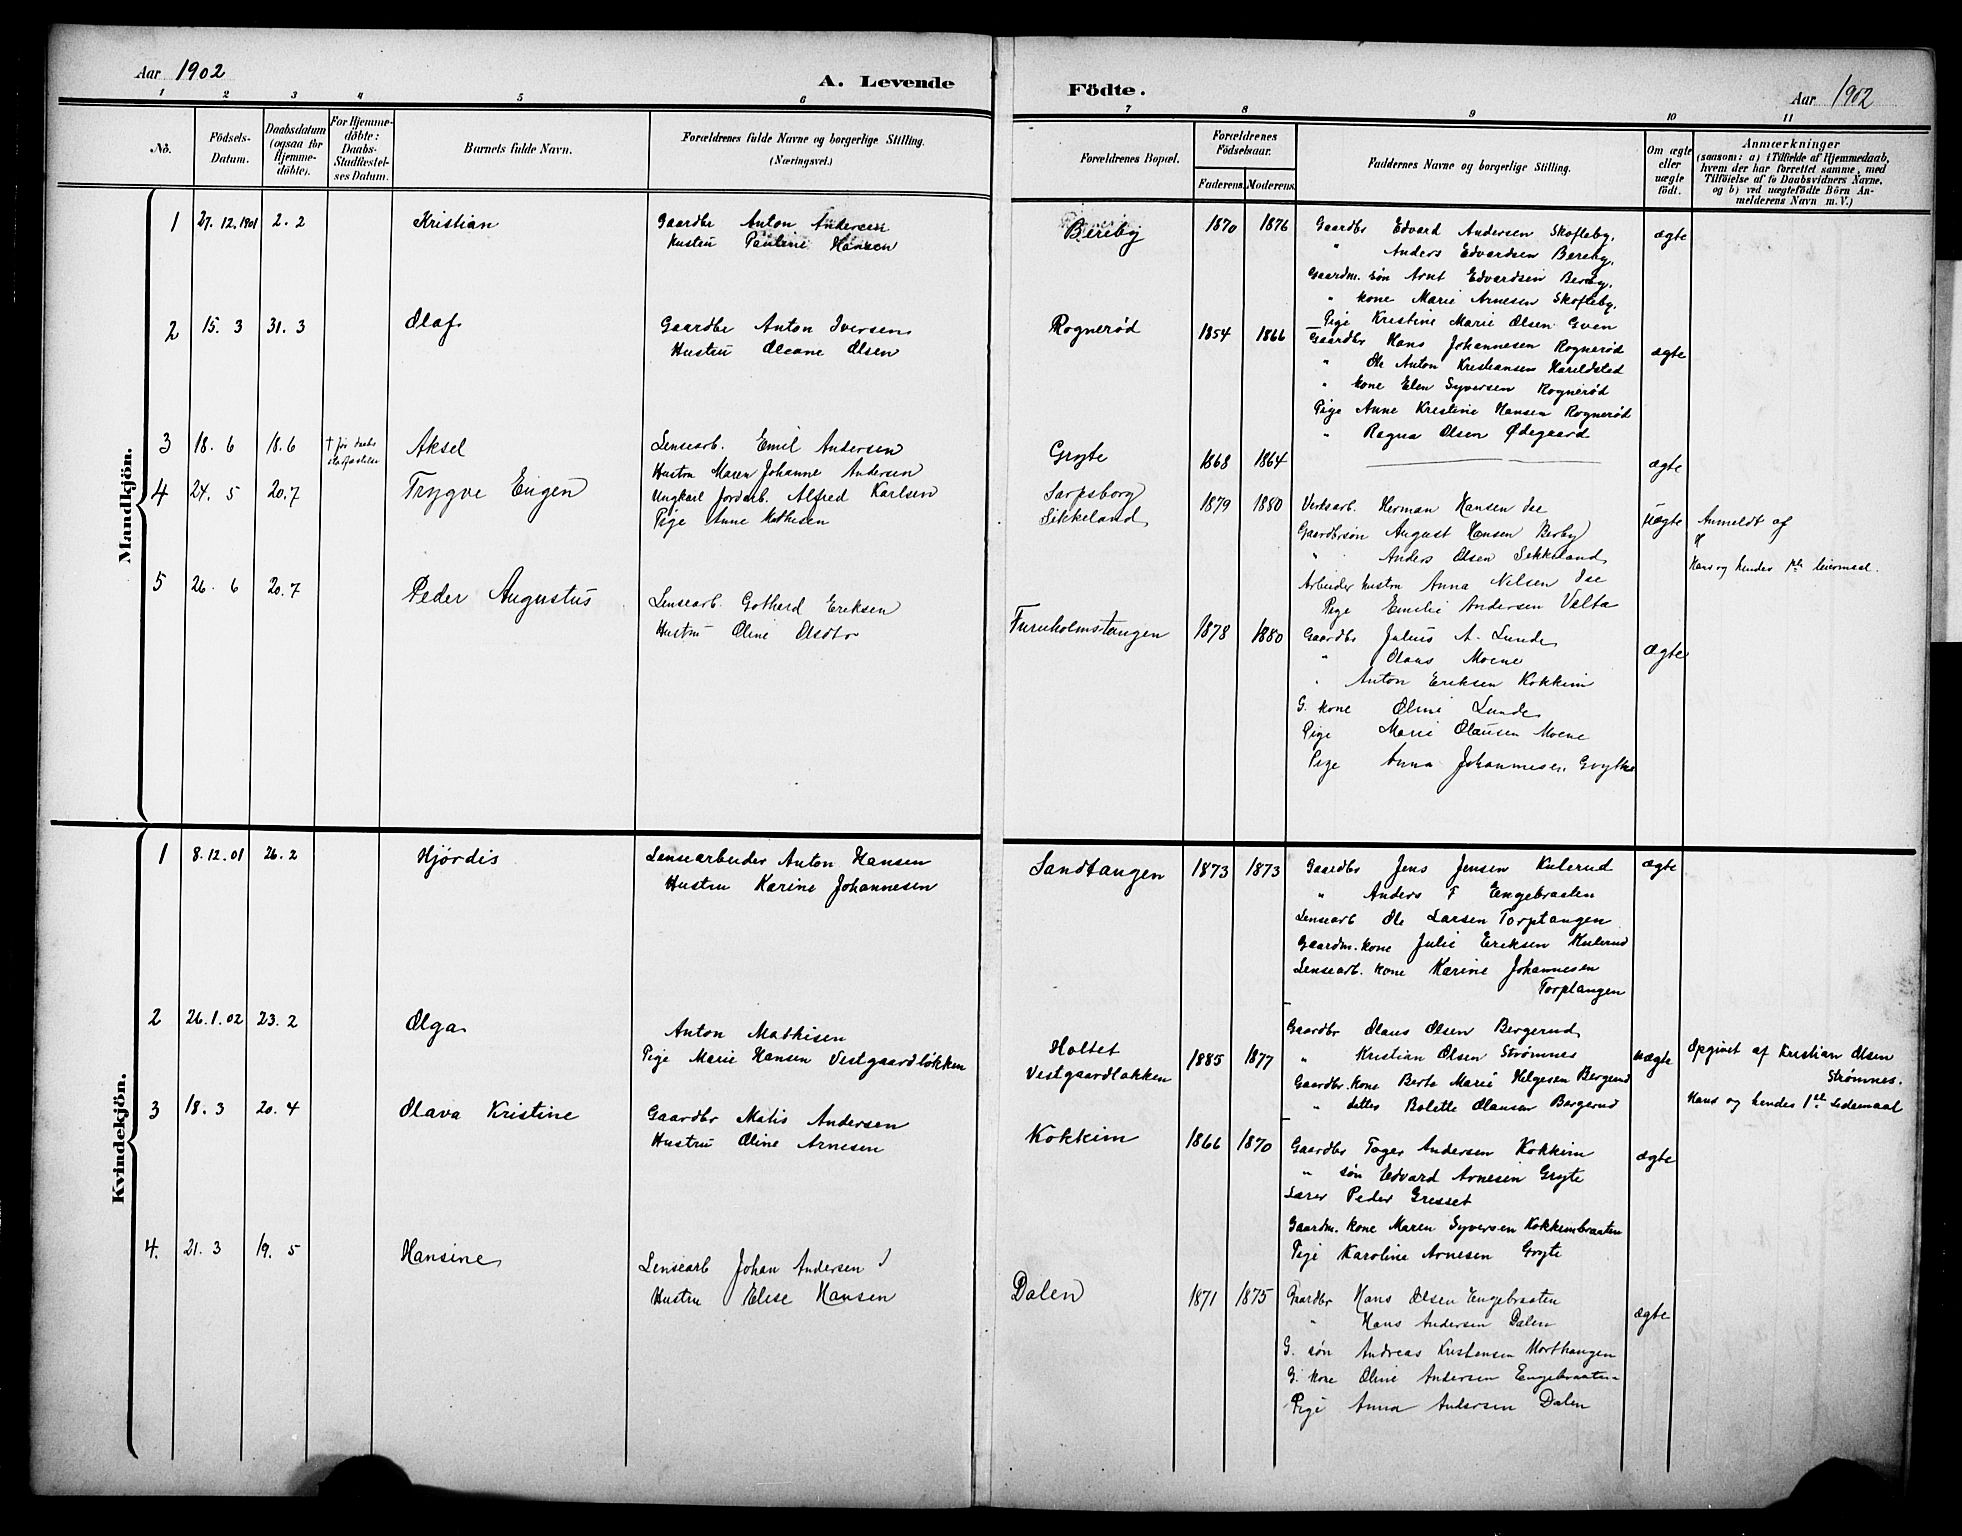 Aar 1902
A. Levende
Födte.
Aar 1902
1 2 3 4 5 6 7 8 9 10 11
No.
Födsels-
Datum.
Daabsdatum
(ogsaa for
Hjemme-
döbte).
For Hjemme-
döbte:
Daabs-
Stadfæstel-
ses Datum.
Barnets fulde Navn.
Forældrenes fulde Navne og borgerlige Stilling.
(Næringsvei.)
Forældrenes Bopæl.
Forældrenes
Födselsaar.
Faderens. Moderens.
Faddernes Navne og borgerlige Stilling.
Om ægte
eller
uægte
födt.
Anmærkninger
(saasom: a) i Tilfælde af Hjemmedaab,
hvem der har forrettet samme, med
Tilföielse af to Daabsvidners Navne,
og b) ved uægtefödte Börn An-
melderens Navn m. V.)
Mandkjön.
1 27.12.1901 2.2 Kristian
Gaardbr Anton Andersen
Hustru Pauline Hansen
Bereby 1870 1876
Gaardbr Edvard Andersen Skofteby,
" Anders Edvardsen Bereby,
Gaardm. søn Arnt Edvardsen Bereby,
" kone Marie Arnesen Skofteby,
Pige Kristine Marie Olsen Gven
ægte
2 15.3 31.3 Olaf
Gaardbr Anton Iversen
Hustru Oleane Olsen
Rognerød 1854 1866
Gaardbr Hans Johannesen Rognerød
" Ole Anton Kristiansen Hareldsted
" kone Elen Syversen Rognerød
Pige Anne Kristine Hansen Rognerød
" Ragna Olsen Ødegaard
ægte
3 18.6 18.6 † før daabs
stadfæstelse
Aksel
Lensearb. Emil Andersen
Hustru Maren Johanne Andersen
Gryte 1868 1864
ægte
4 24.5 20.7 Trygve Eugen
Ungkarl Jordarb. Alfred Karlsen
Pige Anne Mathisen
Sarpsborg
Sikkeland
1879 1880
Verksarb. Herman Hansen Ise
Gaardbrsøn August Hansen Berby
" Anders Olsen Sekkeland
Arbeider hustru Anna Nilsen Ise
Pige Emilie Andersen Valta
uægte
Anmeldt af
Hans og hendes 1ste leiermaal.
5 26.6 20.7 Peder Augustus
Lensearb. Gothard Eriksen
Hustru Oline Olsdtr
Furuholmstangen 1878 1880
Gaardbr Julius A. Lunde
" Olaus Moene
" Anton Eriksen Kokkim
G. kone Oline Lunde
Pige Marie Olausen Moene
Pige Anna Johannesen Gryte
ægte
Kvindekjön.
1 8.12.01 26.2 Hjørdis
Lensearbeider Anton Hansen
Hustru Karine Johannesen
Sandtangen 1873 1873
Gaardbr Jens Jensen Kulerud
" Anders F Engebraaten
Lensearb Ole Larsen Torptangen
Gaardm. kone Julie Eriksen Kulerud
Lensearb. kone Karine Johannesen
Torptangen
ægte
2 26.1.02 23.2 Olga
Anton Mathisen
Pige Marie Hansen Vestgaardløkken
Holtet
Vestgaardløkken
1885 1877
Gaardbr Olaus Olsen Bergerud
" Kristian Olsen Strømnes
Gaardbr. kone Berte Marie Helgesen Bergerud
" datter Bolette Olausen Bergerud
uægte
Opgivet af Kristian Olsen
Strømnes.
Hans og hendes 1ste Ledemaal
3 18.3 20.4 Olava Kristine
Gaardbr Matis Andersen
Hustru Oline Arnesen
Kokkim 1866 1870
Gaardbr Toger Andersen Kokkim
" søn Edvard Arnesen Gryte
Lærer Peder Gresset
Gaardm. kone Maren Syversen Kokkimbraaten
Pige Karoline Arnesen Gryte
ægte
4. 21.3 19.5 Hansine
Lensearb Johan Andersen
Hustru Elise Hansen
Dalen 1871 1875
Gaardbr Hans Olsen Engebraaten
" Hans Andersen Dalen
G. søn Andreas Kristensen Morthaugen
G. kone Oline Andersen Engebraaten
Pige Anna Andersen Dalen
ægte